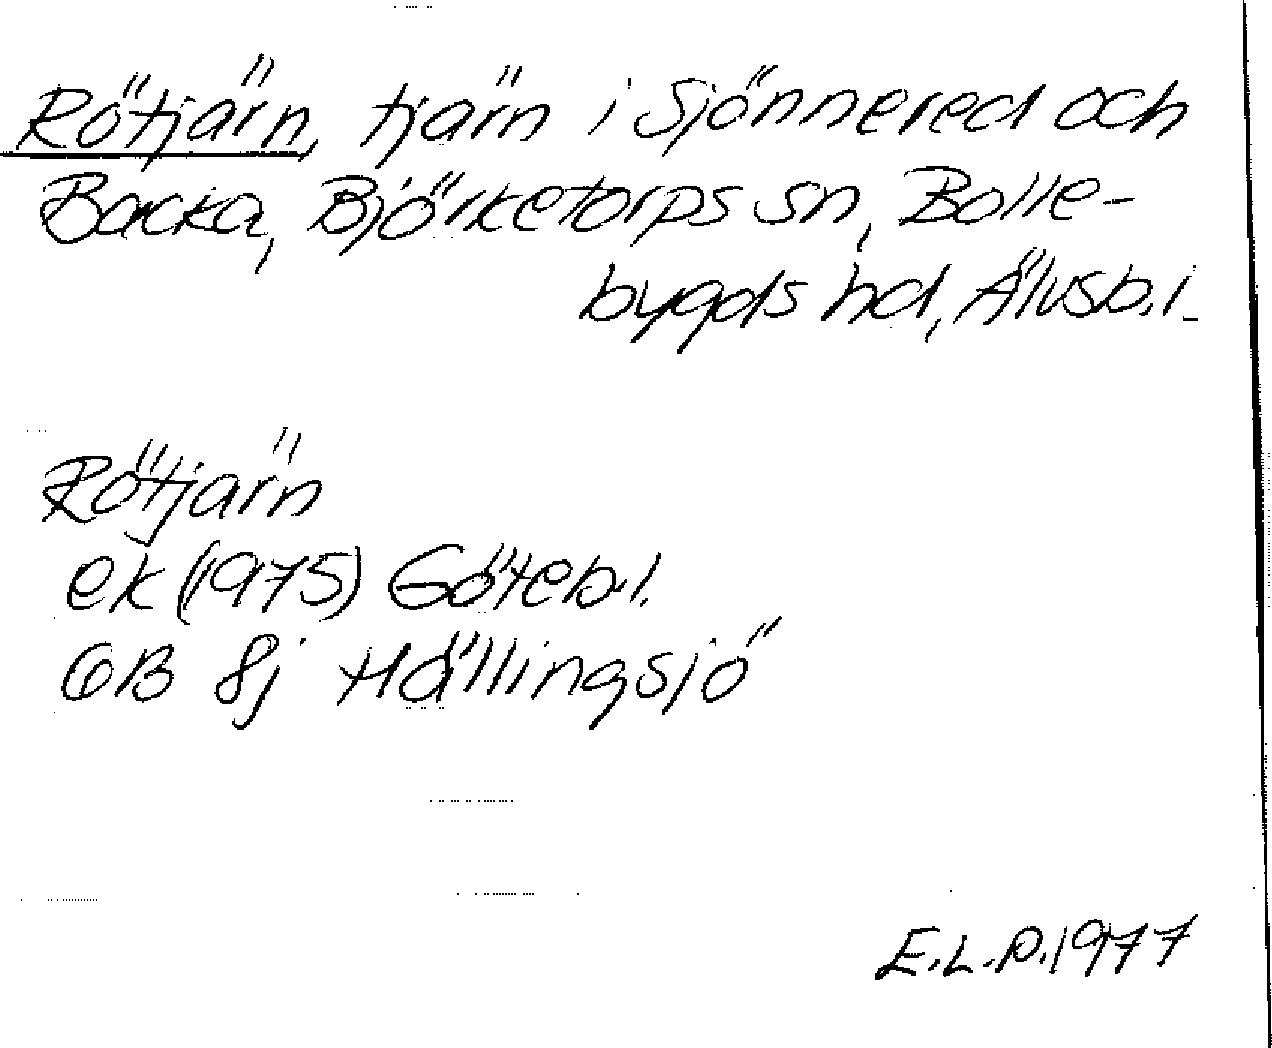 Rötjärn, tjärn i Sjönnered och
Backa, Björketorps sn, Bolle-
bygds hd, Älvsb.l.
Rötjärn
ek (1975) Göteb.l.
6B 8j Hällingsjö
E.L.P. 1977